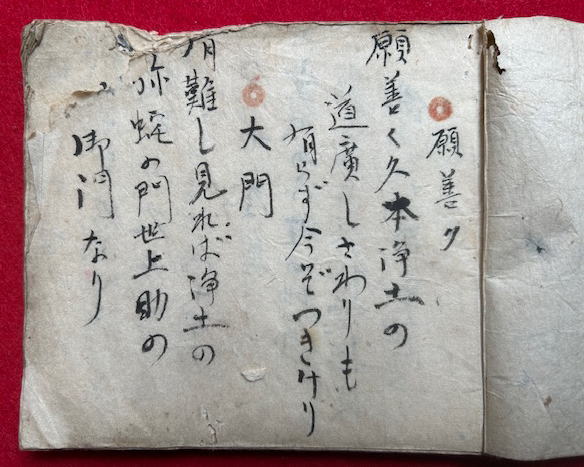 願善久
願善く久本浄土の
道廣しさわりも
有らず今ぞつきけり
大門
有難し見れば浄土の
弥蛇の門世上助の
御門なり